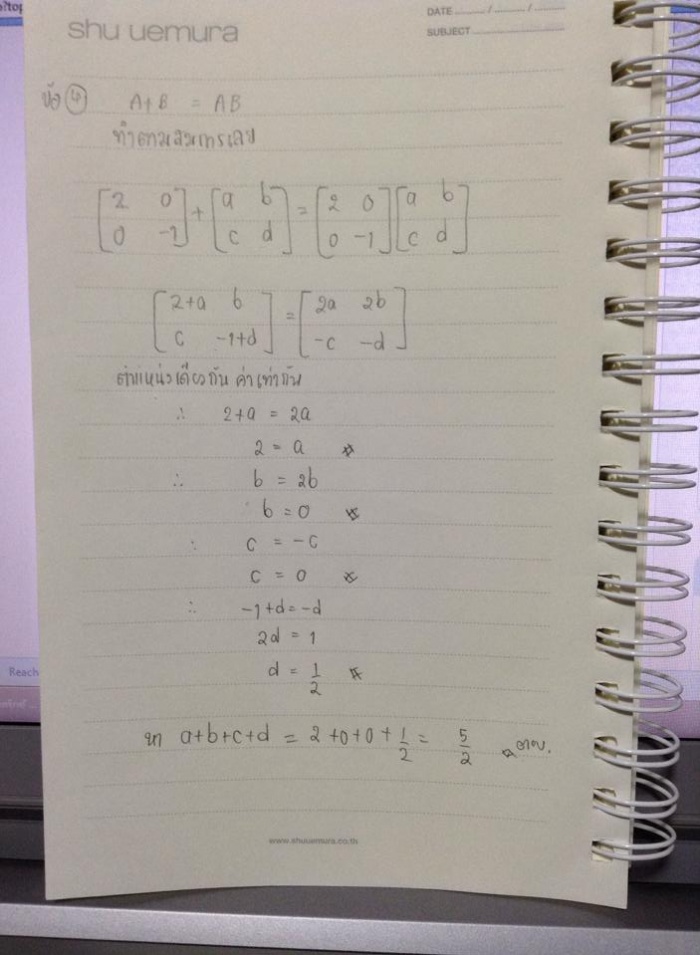 shu uemura
DATE ....... / ....... / .......
SUBJECT
ข้อ ④ A+B = AB
ทำตามสมการเลย
[2 0; 0 -1] + [a b; c d] = [2 0; 0 -1] [a b; c d]
[2+a b; c -1+d] = [2a 2b; -c -d]
ตำแหน่งเดียวกัน ค่าเท่ากัน
∴ 2+a = 2a
2 = a
∴ b = 2b
b = 0
∴ c = -c
c = 0
∴ -1+d = -d
2d = 1
d = 1/2
หา a+b+c+d = 2+0+0+1/2 = 5/2 ตอบ.
www.shuuemura.co.th
Reach